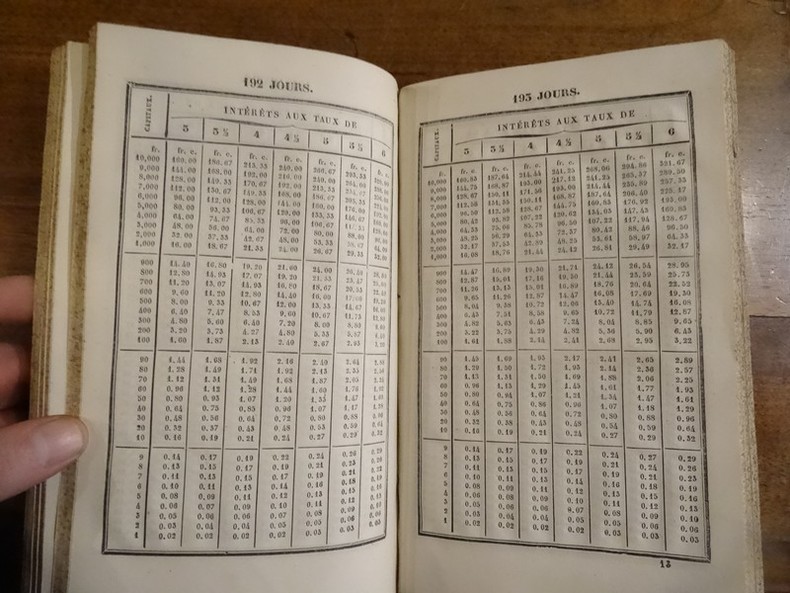 192 JOURS.
CAPITAUX.
INTÉRÊTS AUX TAUX DE
3 3 ½ 4 4 ½ 5 5 ½ 6
fr. fr. c. fr. c. fr. c. fr. c. fr. c. fr. c. fr. c.
10,000 160.00 186.67 213.33 240.00
9,000 144.00 168.00 192.00 216.00 240.00
8,000 128.00 149.33 170.67 192.00 213.33
7,000 112.00 130.67 149.33 168.00 186.67
6,000 96.00 112.00 128.00 144.00 160.00
5,000 80.00 93.33 106.67 120.00 133.33
4,000 64.00 74.67 85.33 96.00 106.67
3,000 48.00 56.00 64.00 72.00 80.00 88.00
2,000 32.00 37.33 42.67 48.00 53.33
1,000 16.00 18.67 21.33 24.00 26.67 29.33
900 14.40 16.80 19.20 21.60 24.00 26.40
800 12.80 14.93 17.07 19.20 21.33 23.47
700 11.20 13.07 14.93 16.80 18.67 20.53
600 9.60 11.20 12.80 14.40 16.00
500 8.00 9.33 10.67 12.00 13.33 14.67
400 6.40 7.47 8.53 9.60 10.67 11.73
300 4.80 5.60 6.40 7.20 8.00 8.80
200 3.20 3.73 4.27 4.80 5.33 5.87
100 1.60 1.87 2.13 2.40 2.67 2.93
90 1.44 1.68 1.92 2.16 2.40 2.64
80 1.28 1.49 1.71 1.92 2.13 2.35
70 1.12 1.31 1.49 1.68 1.87 2.05
60 0.96 1.12 1.28 1.44 1.60 1.76
50 0.80 0.93 1.07 1.20 1.33 1.47
40 0.64 0.75 0.85 0.96 1.07 1.17
30 0.48 0.56 0.64 0.72 0.80 0.88 0.96
20 0.32 0.37 0.43 0.48 0.53 0.59 0.64
10 0.16 0.19 0.21 0.24 0.27 0.29 0.32
9 0.14 0.17 0.19 0.22 0.24 0.26 0.29
8 0.13 0.15 0.17 0.19 0.21 0.23 0.26
7 0.11 0.13 0.15 0.17 0.19 0.21
6 0.10 0.11 0.13 0.14 0.16 0.18 0.19
5 0.08 0.09 0.11 0.12 0.13 0.15 0.16
4 0.06 0.07 0.09 0.10 0.11 0.12 0.13
3 0.05 0.06 0.06 0.07 0.08 0.09
2 0.03 0.04 0.04 0.05 0.05 0.06 0.06
1 0.02 0.02 0.02 0.02 0.03 0.03 0.03
193 JOURS.
CAPITAUX.
INTÉRÊTS AUX TAUX DE
3 3 ½ 4 4 ½ 5 5 ½ 6
fr. fr. c. fr. c. fr. c. fr. c. fr. c. fr. c. fr. c.
10,000 160.83 187.64 214.44 241.25 268.06 294.86 321.67
9,000 144.75 168.87 193.00 241.25 265.37 289.50
8,000 128.67 150.11 171.56 193.00 214.44 235.89 257.33
7,000 112.58 131.35 150.11 168.87 187.64 206.40 225.17
6,000 96.50 112.58 128.67 144.75 160.83 176.92 193.00
5,000 80.42 93.82 107.22 120.62 134.03 147.43 160.83
4,000 64.33 75.06 85.78 96.50 107.22 117.94 128.67
3,000 48.25 56.29 64.33 72.37 80.42 88.46 96.50
2,000 32.17 37.53 42.89 48.25 53.61 58.97 64.33
1,000 16.08 18.76 21.44 24.12 26.81 29.49 32.17
900 14.47 16.88 19.30 21.71 24.12 26.54 28.95
800 12.87 15.01 17.16 19.30 21.44 23.59 25.73
700 11.26 13.13 15.01 16.89 18.76 20.64 22.52
600 9.65 11.26 12.87 14.47 16.08 17.69 19.30
500 8.04 9.38 10.72 12.06 13.40 14.74 16.08
400 6.43 7.51 8.58 9.65 10.72 11.79 12.87
300 4.82 5.63 6.43 7.24 8.04 8.85 9.65
200 3.22 3.75 4.29 4.82 5.36 5.90 6.43
100 1.61 1.88 2.14 2.41 2.68 2.95 3.22
90 1.45 1.69 1.93 2.17 2.41 2.65 2.89
80 1.29 1.50 1.72 1.93 2.14 2.36 2.57
70 1.13 1.31 1.50 1.69 1.88 2.06 2.25
60 0.96 1.13 1.29 1.45 1.61 1.77 1.93
50 0.80 0.94 1.07 1.21 1.34 1.47 1.61
40 0.64 0.75 0.86 0.96 1.07 1.18 1.29
30 0.48 0.56 0.64 0.72 0.80 0.88 0.96
20 0.32 0.38 0.43 0.48 0.54 0.59 0.64
10 0.16 0.19 0.21 0.24 0.27 0.29 0.32
9 0.14 0.17 0.19 0.22 0.24 0.27 0.29
8 0.13 0.15 0.17 0.19 0.21 0.24 0.26
7 0.11 0.13 0.15 0.17 0.19 0.21 0.23
6 0.10 0.11 0.13 0.14 0.16 0.18 0.19
5 0.08 0.09 0.11 0.12 0.13 0.15 0.16
4 0.06 0.08 0.09 0.10 0.11 0.12 0.13
3 0.05 0.06 0.06 0.07 0.08 0.09 0.10
2 0.03 0.04 0.04 0.05 0.05 0.06 0.06
1 0.02 0.02 0.02 0.02 0.03 0.03 0.03
13